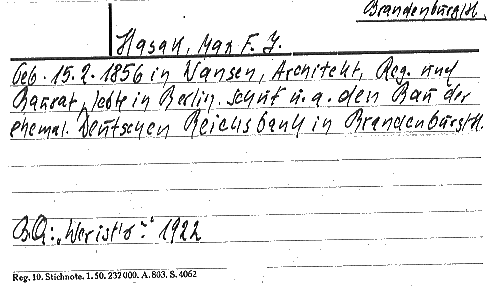 Brandenburg/H.
Hasak, Max F. J.
Geb. 15.2.1856 in Wansen, Architekt, Reg. und
Baurat, lebte in Berlin. schuf u. a. den Bau der
ehemal. Deutschen Reichsbank in Brandenburg/H.
B.Q.: „Wer ist's?" 1922
Reg. 10. Stichnote. 1. 50. 232 000. A. 803. S. 4062